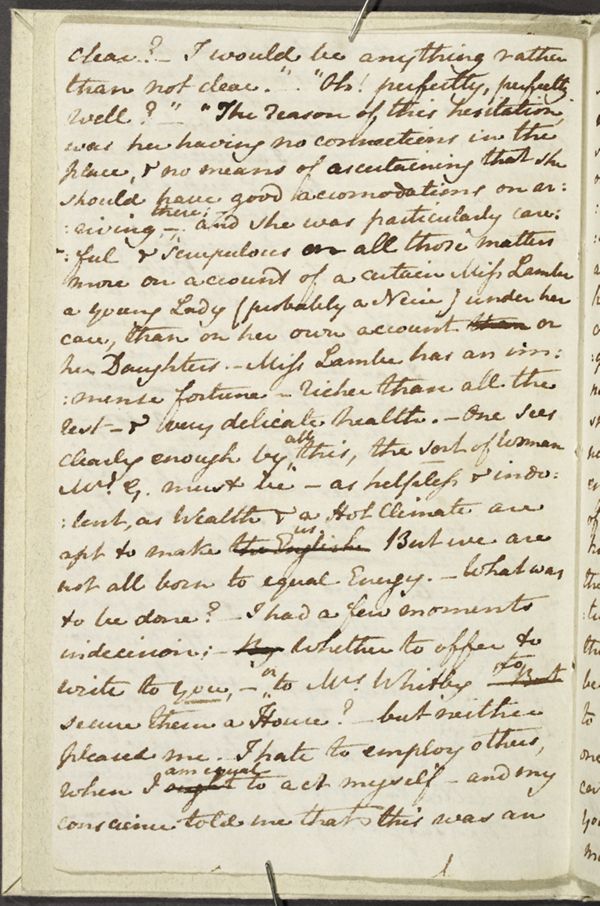 clear? – I would be anything rather
than not clear." – "Oh! perfectly, perfectly
well?" – "The reason of this hesitation
was her having no connections in the
place, & no means of ascertaining that she
should have good accomodations on ar:
:riving there; – and she was particularly care:
:ful & scrupulous on all those matters
more on account of a certain Miss Lambe
a young Lady (probably a Neice) under her
care, than on her own account than or
her Daughters. – Miss Lambe has an im:
:mense fortune – richer than all the
rest – & very delicate health. – One sees
clearly enough by all this, the sort of Woman
Mrs. G. must be – as helpless & indo:
:lent, as Wealth & a Hot Climate are
apt to make the English us But we are
not all born to equal Energy. – What was
to be done? – I had a few moments
indecision; – Whether to offer to
write to you, – or to Mrs. Whitby to But
secure them a House? – but neither
pleased me. – I hate to employ others,
when I ought am equal to act myself – and my
conscience told me that this was an